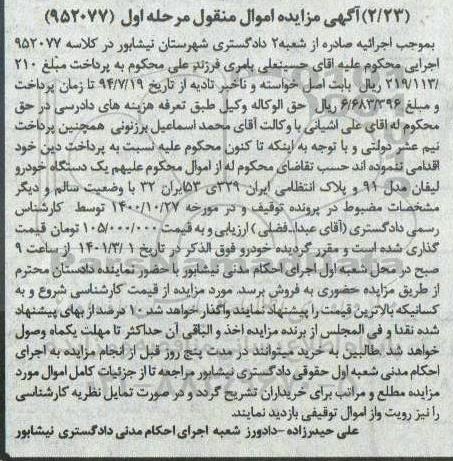 (۲/۲۳) آگهی مزایده اموال منقول مرحله اول (۹۵۲۰۷۷)
بموجب اجرائیه صادره از شعبه۲ دادگستری شهرستان نیشابور در کلاسه ۹۵۲۰۷۷
اجرایی محکوم علیه اقای حسینعلی یامری فرزند علی محکوم به پرداخت مبلغ ۲۱۰
/۲۱۹/۱۱۳ ریال بابت اصل خواسته و تاخیر تادیه از تاریخ ۹۴/۷/۱۹ تا زمان پرداخت
و مبلغ ۶/۶۸۳/۳۹۶ ریال حق الوکاله وکیل طبق تعرفه هزینه های دادرسی در حق
محکوم له اقای علی اشیانی با وکالت آقای محمد اسماعیل برزنونی همچنین پرداخت
نیم عشر دولتی و با توجه به اینکه تا کنون محکوم علیه نسبت به پرداخت دین خود
اقدامی ننموده اند حسب تقاضای محکوم له از اموال محکوم علیهم یک دستگاه خودرو
لیفان مدل ۹۱ و پلاک انتظامی ایران ۳۳۹ی ۵۳ایران ۳۲ با وضعیت سالم و دیگر
مشخصات مضبوط در پرونده توقیف و در مورخه ۱۴۰۰/۱۰/۲۷ توسط کارشناس
رسمی دادگستری (آقای عبدا..فضلی) ارزیابی و به قیمت ۱۰۵/۰۰۰/۰۰۰ تومان قیمت
گذاری شده است و مقرر گردیده خودرو فوق الذکر در تاریخ ۱۴۰۱/۳/۱ از ساعت ۹
صبح در محل شعبه اول اجرای احکام مدنی نیشابور با حضور نماینده دادستان محترم
از طریق مزایده حضوری به فروش برسد. مورد مزایده از قیمت کارشناسی شروع و به
کسانیکه بالاترین قیمت را پیشنهاد نمایند واگذار خواهد شد ۱۰ درصد از بهای پیشنهاد
شده نقدا و فی المجلس از برنده مزایده اخذ و الباقی آن حداکثر تا مهلت یکماه وصول
خواهد شد .طالبین به خرید میتوانند در مدت پنج روز قبل از انجام مزایده به اجرای
احکام مدنی شعبه اول حقوقی دادگستری نیشابور مراجعه تا از جزئیات کامل اموال مورد
مزایده مطلع و مراتب برای خریداران تشریح گردد و در صورت تمایل نظریه کارشناسی
را نیز رویت واز اموال توقیفی بازدید نمایند.
علی حیدرزاده -دادورز شعبه اجرای احکام مدنی دادگستری نیشابور